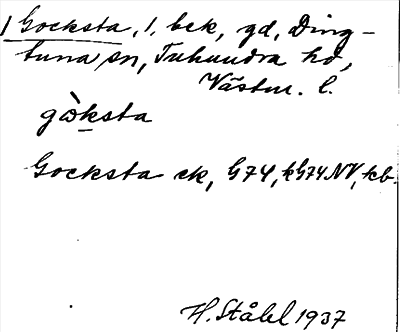 Gocksta, l. bek, gd, Ding-
tuna sn, Tuhundra hd,
Västm. l.
gò̱ksta
Gocksta ek, G74, kG74NV, kb.
H. Ståhl 1937